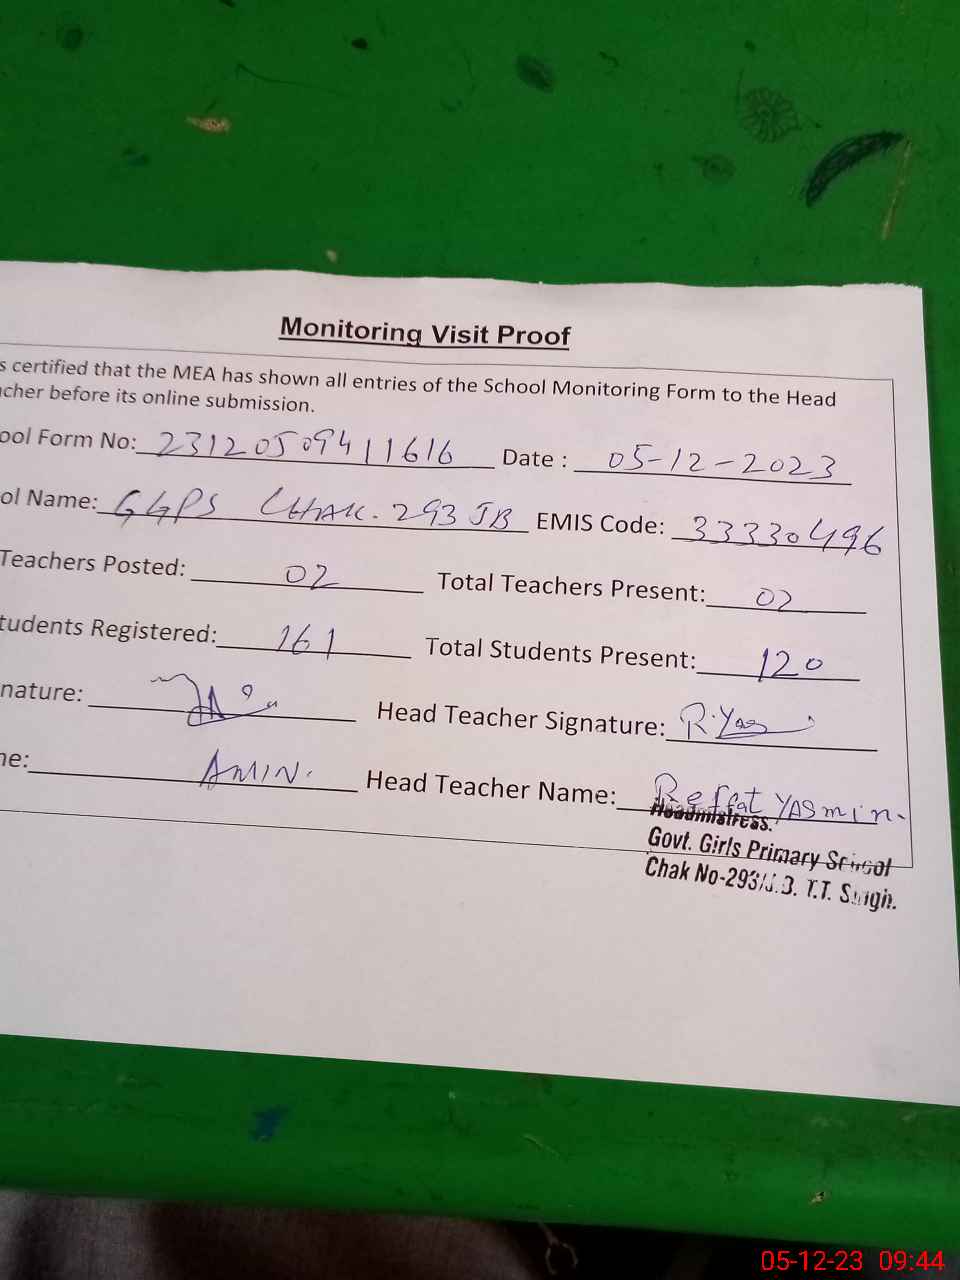 Monitoring Visit Proof
s certified that the MEA has shown all entries of the School Monitoring Form to the Head
cher before its online submission.
ool Form No: 23120509411616 Date : 05-12-2023
ol Name: GGPS CHAK. 293 JB EMIS Code: 33330496
Teachers Posted: 02 Total Teachers Present: 02
tudents Registered: 161 Total Students Present: 120
nature: Head Teacher Signature: R.Yas
me: AMIN. Head Teacher Name: Reffat YASmin.
Headmistress.
Govt. Girls Primary School
Chak No-293/J.B. T.T. Singh.
05-12-23 09:44